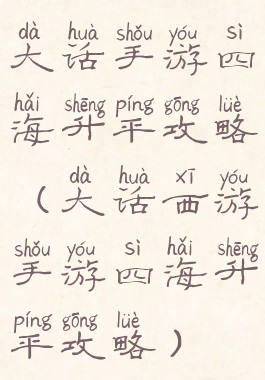 dà huà shǒu yóu sì
大话手游四
hǎi shēng píng gōng lüè
海升平攻略
dà huà xī yóu
（大话西游
shǒu yóu sì hǎi shēng
手游四海升
píng gōng lüè
平攻略）